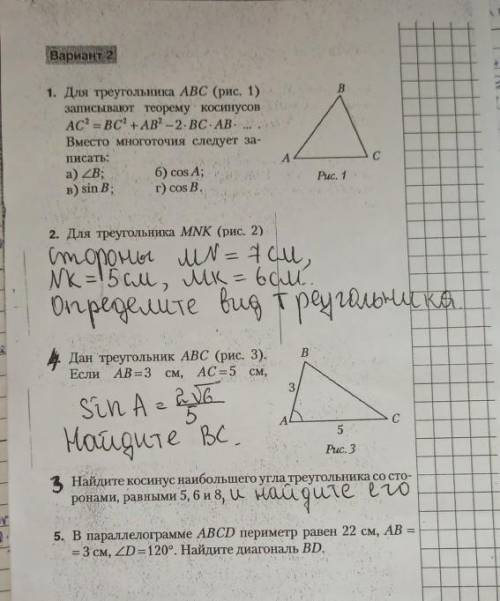 Вариант 2
1. Для треугольника ABC (рис. 1)
записывают теорему косинусов
AC² = BC² + AB² − 2 · BC · AB · ... .
Вместо многоточия следует за-
писать:
а) ∠B; б) cos A;
в) sin B; г) cos B.
B
A
C
Рис. 1
2. Для треугольника MNK (рис. 2)
стороны MN = 7 см,
NK = 5 см, MK = 6 см.
Определите вид треугольника.
4 Дан треугольник ABC (рис. 3).
Если AB = 3 см, AC = 5 см,
sin A = 2√6/5
Найдите BC.
B
3
A
5
C
Рис. 3
3 Найдите косинус наибольшего угла треугольника со сто-
ронами, равными 5, 6 и 8, и найдите его
5. В параллелограмме ABCD периметр равен 22 см, AB =
= 3 см, ∠D = 120°. Найдите диагональ BD.